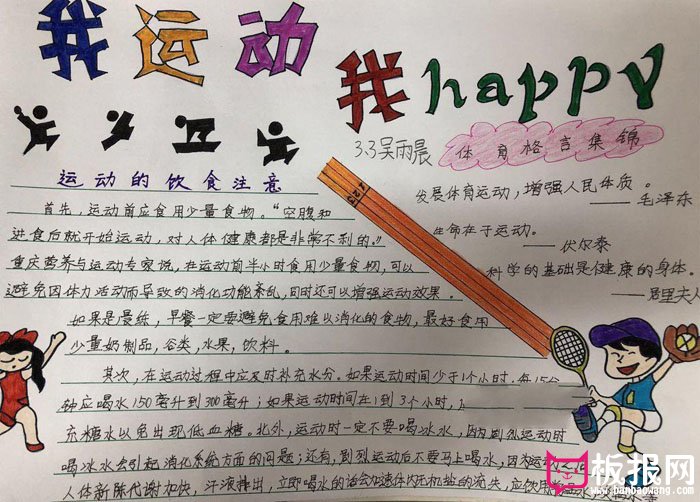 我运动
我happy
3.3吴雨晨
体育格言集锦
发展体育运动，增强人民体质。
——毛泽东
生命在于运动。
——伏尔泰
科学的基础是健康的身体。
——居里夫人
123
运动的饮食注意
首先，运动前应食用少量食物。“空腹和
进食后就开始运动，对人体健康都是非常不利的。”
重庆营养与运动专家说，在运动前半小时食用少量食物，可以
避免因体力活动而导致的消化功能紊乱，同时还可以增强运动效果。
如果是晨练，早餐一定要避免食用难以消化的食物，最好食用
少量奶制品，谷类，水果，饮料。
其次，在运动过程中应及时补充水分。如果运动时间少于1个小时，每15分
钟应喝水150毫升到300毫升；如果运动时间在1到3个小时，
充糖水以免出现低血糖。此外，运动时一定不要喝冰水，因为剧烈运动时
喝冰水会引起消化系统方面的问题；还有，剧烈运动后不要马上喝水，因为运动之后
人体新陈代谢加快，汗液排出，立即喝水的话会加速体内无机盐的流失，应饮用
板报网
www.banbaowang.com